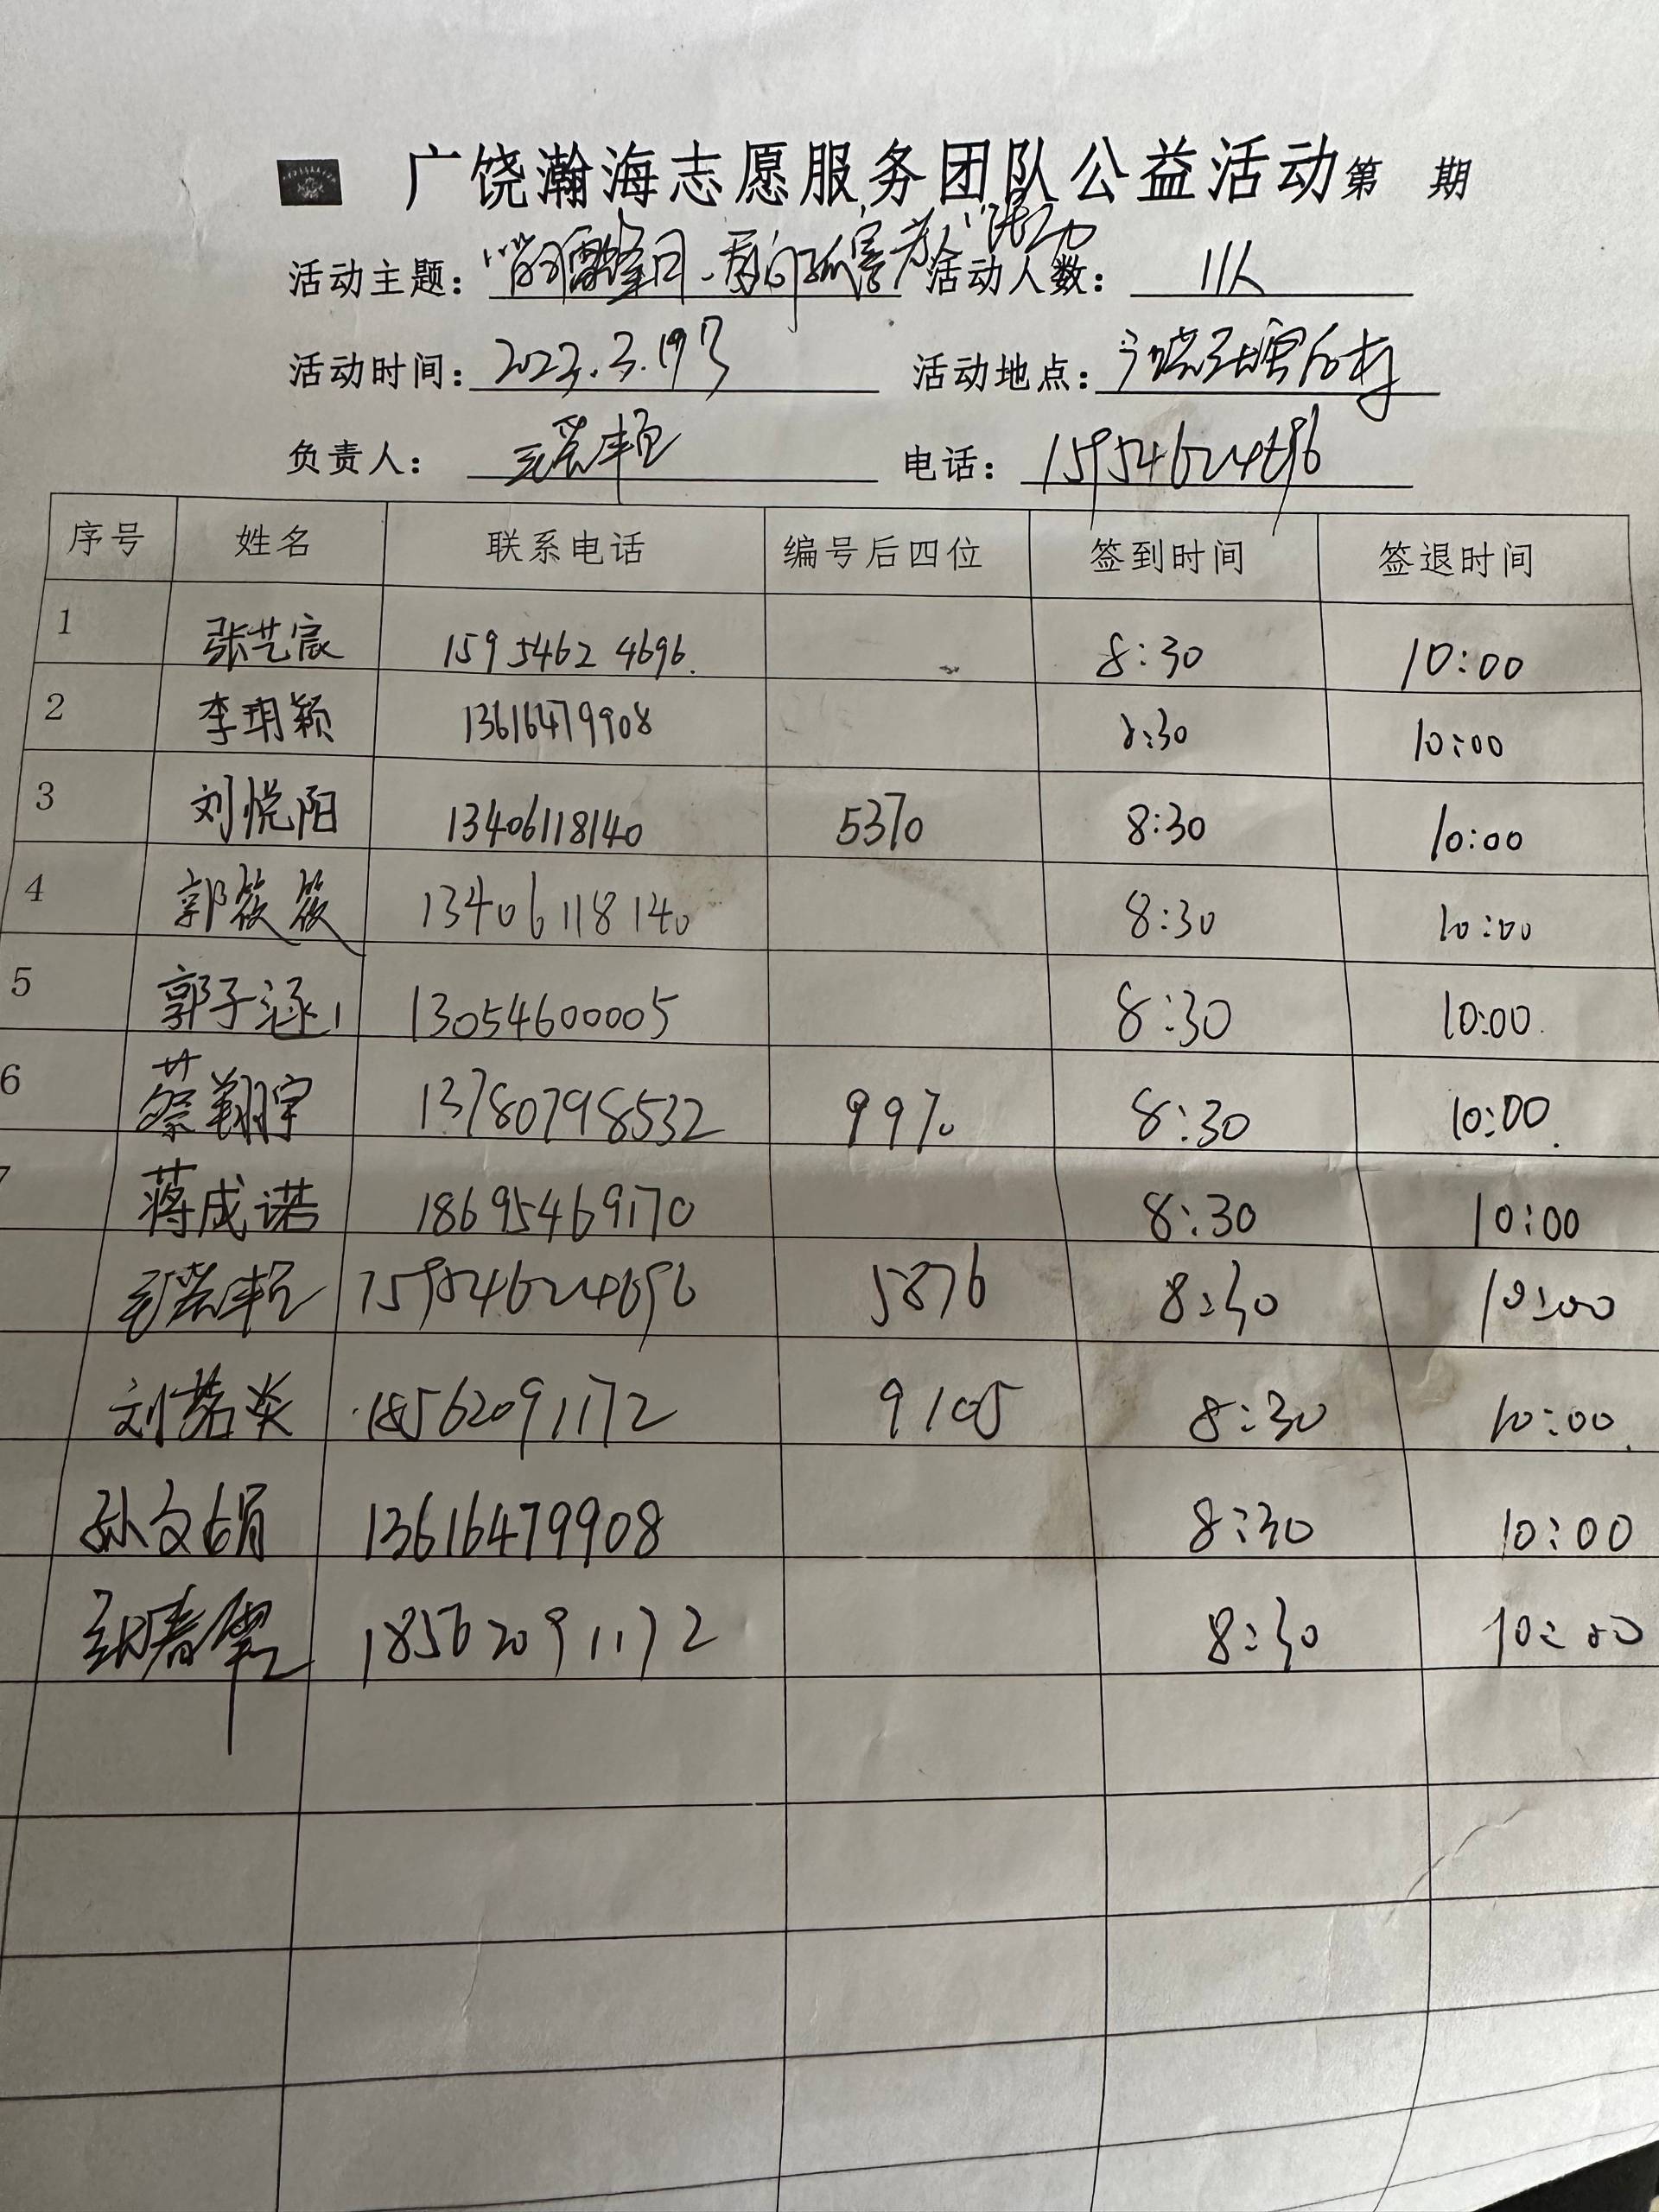 广饶瀚海志愿服务团队公益活动第 期
活动主题： 活动人数：11人
活动时间：2023.3.19 活动地点：
负责人： 电话：15954624696
序号 姓名 联系电话 编号后四位 签到时间 签退时间
1 张艺宸 15954624696. 8:30 10:00
2 李玥颖 13616479908 8:30 10:00
3 刘悦阳 13406118140 5370 8:30 10:00
4 郭筱筱 13406118140 8:30 10:00
5 郭子涵 13054600005 8:30 10:00
6 蔡翔宇 13780798532 9970 8:30 10:00
蒋成诺 18695469170 8:30 10:00
15954624696 5876 8:30 10:00
刘若炎 18562091172 9105 8:30 10:00
孙文娟 13616479908 8:30 10:00
18562091172 8:30 10:00